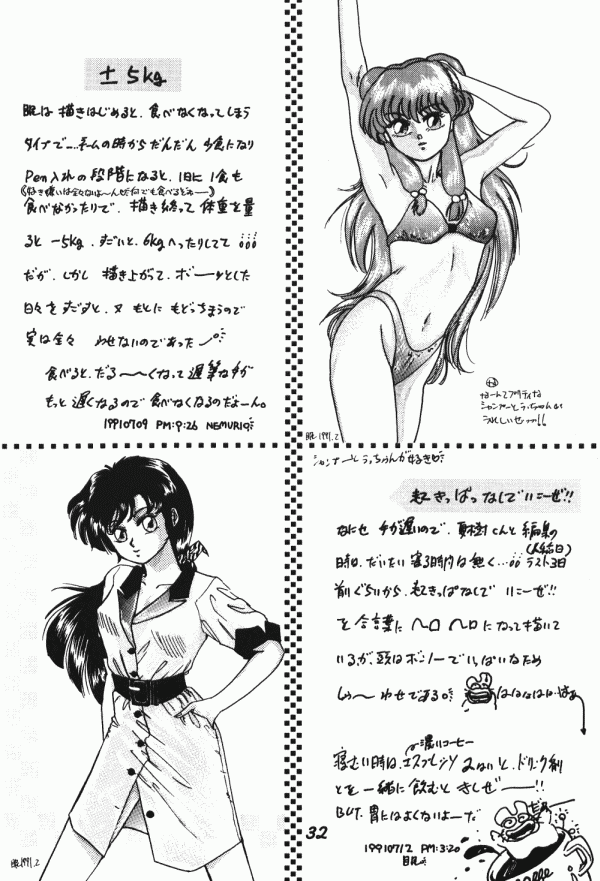 ± 5kg
眠は 描きはじめると、食べなくなってしまう
タイプで…ネームの時からだんだん 少食になり
Pen入れの段階になると、1日に 1食も
食べなかったりで、描き終って 体重を量
ると -5kg、すごいと、6kgへったりしてて
だが、しかし 描き上がって、ボーッとした
日々を すごすと、又 もとに もどっちまうので
実は全々 やせないのであった
食べると、だる〜〜くなって 遅筆な手が
もっと 遅くなるので 食べなくなるのだよーん。
19910709 PM:9:26 NEMURIQ
なーんてプリティな
シャンプーとらっちゃんが
うれしいぜっ!!
眠 1991.2
シャンプーとらっちゃんが好きだ
起きっぱなしでいこーぜ!!
なにせ 手が遅いので、夏樹くんと 編集の
時は、だいたい 寝る時間は無く… ラスト3日
前ぐらいから、起きっぱなしで いこーぜ!!
を 合言葉に ヘロ ヘロ になって描いて
いるが、頭は ボーッ でいっぱいなため
しゅ〜 わせである。
はははは
寝むい時は、エスプレッソ
濃いコーヒー
ドリンク剤
とを 一緒に 飲むと きくぜ——!!
BUT. 胃にはよくないよーだ
19910712 PM:3:20
眠
眠 1991.2
32